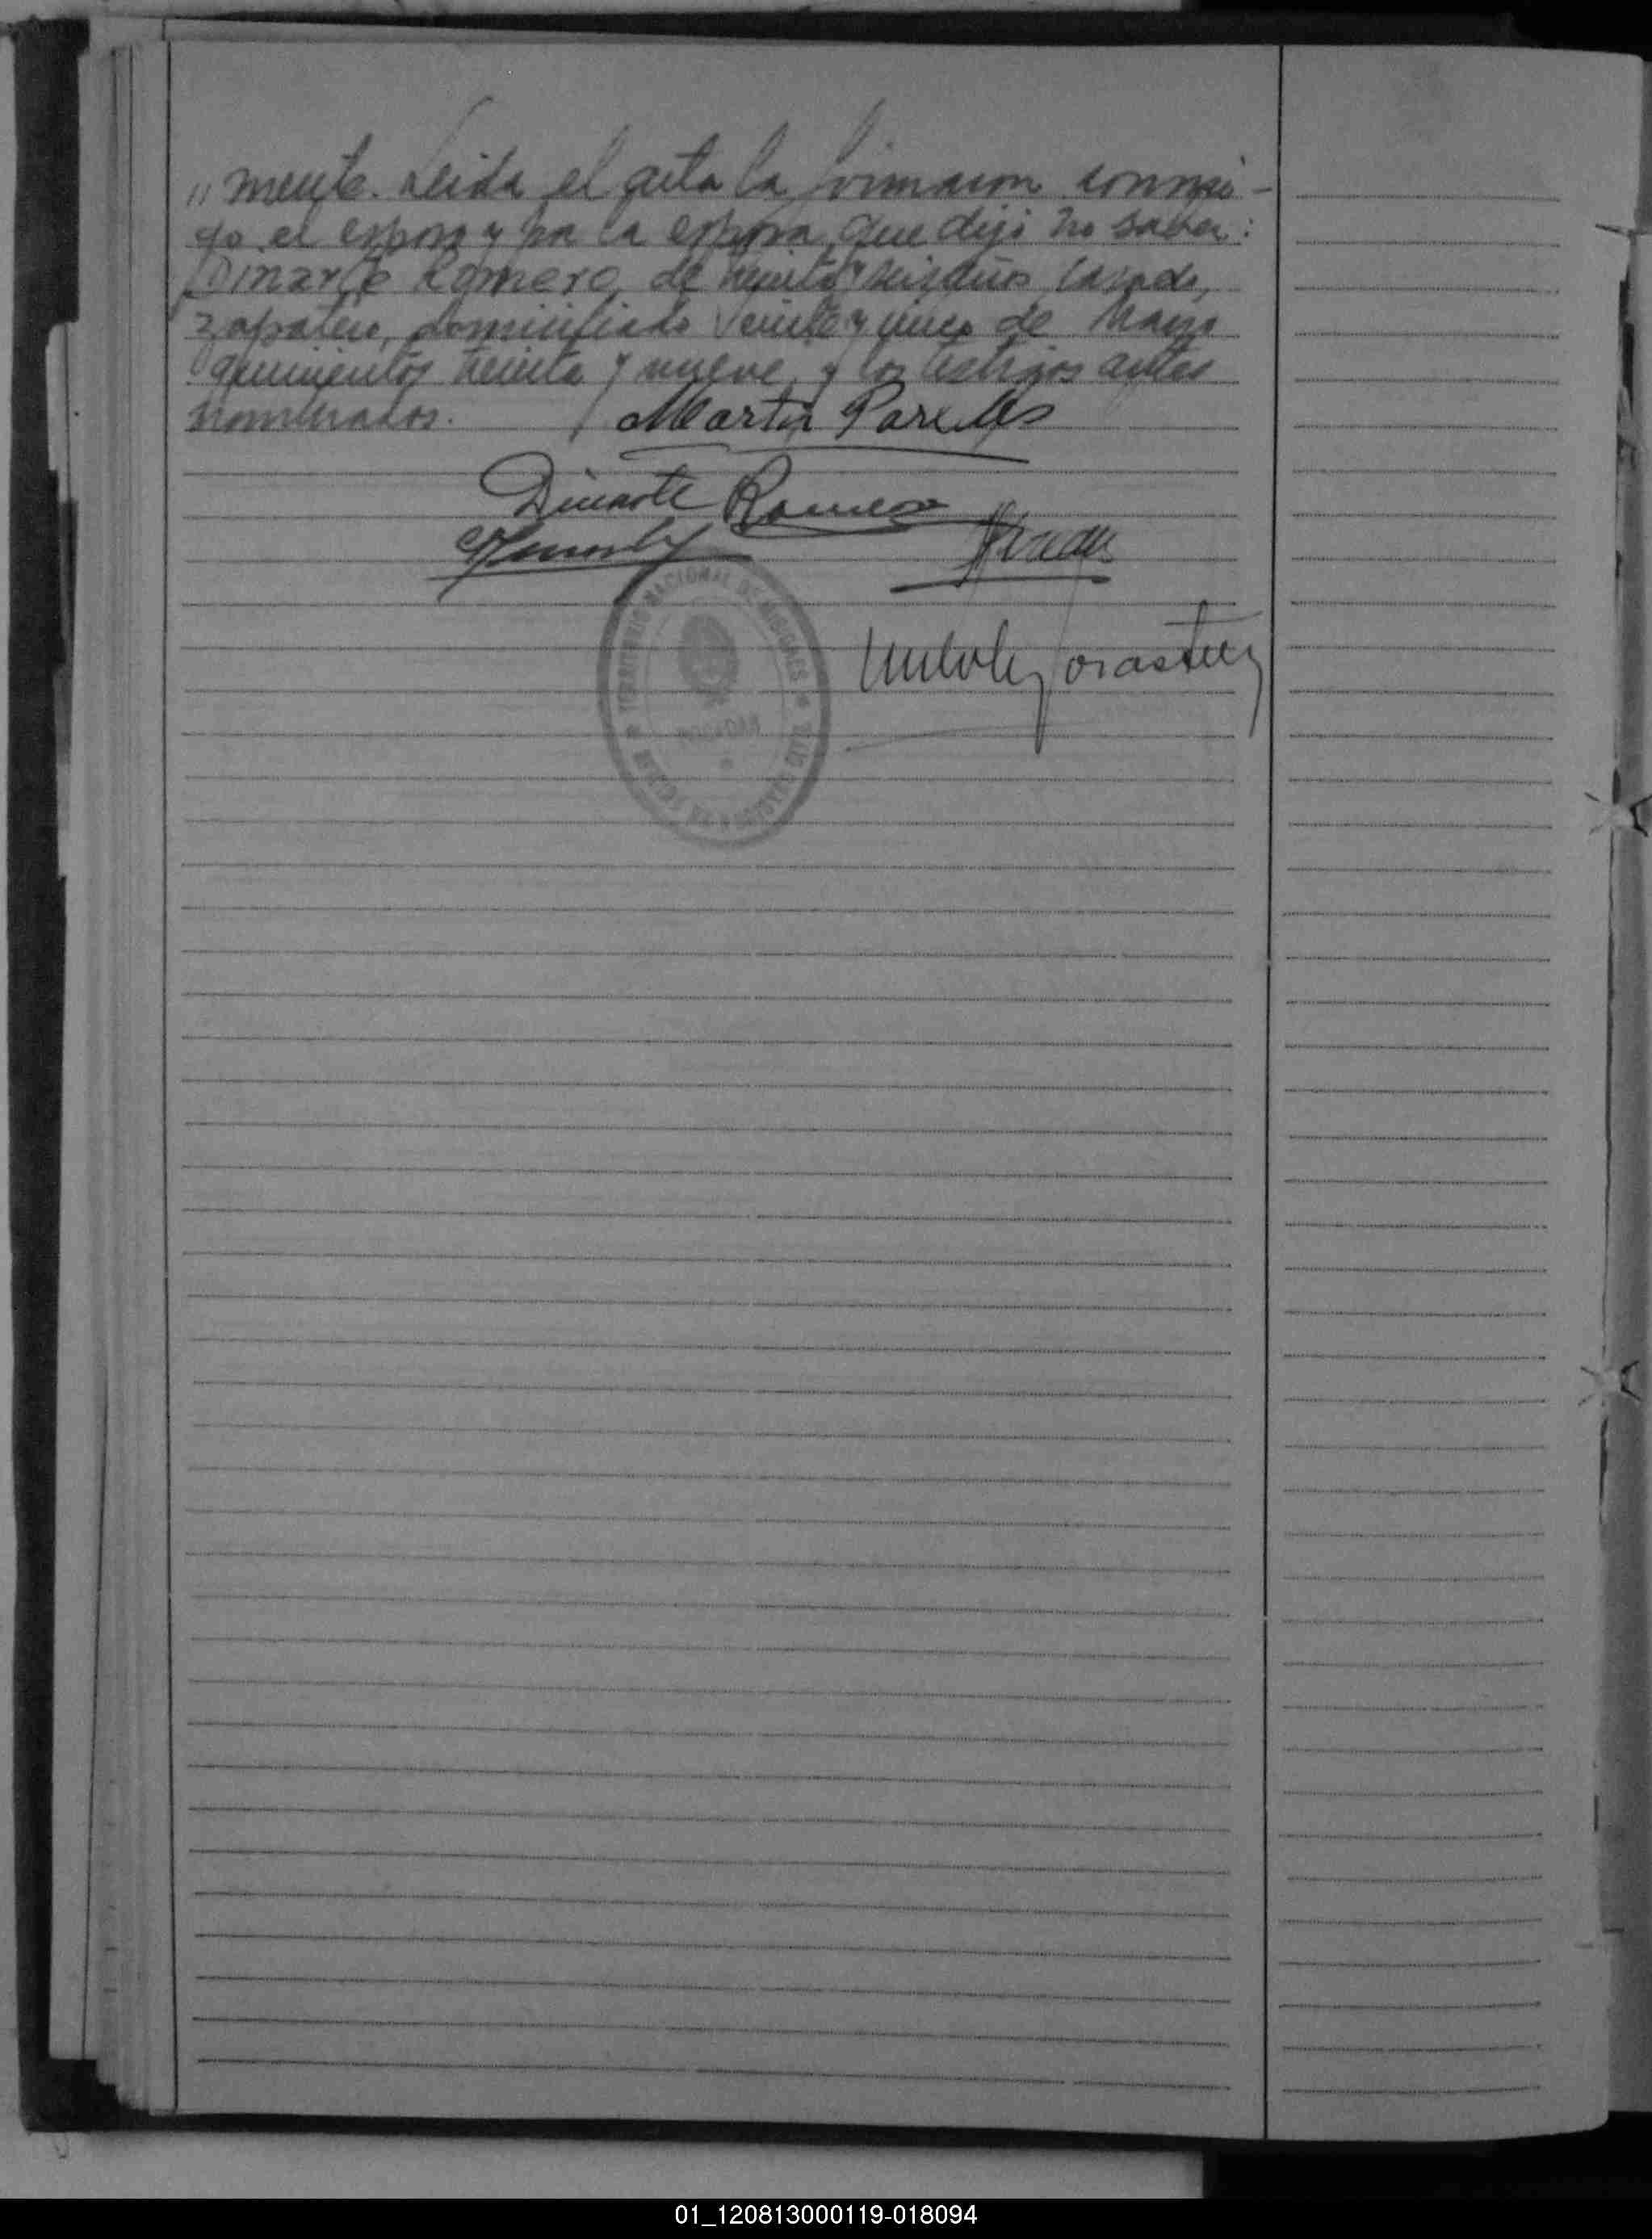 " mente. Leida el acta la firmaron conmi-
go el esposo y por la esposa, que dijo no saber:
Dinarte Romero, de treinta y seis años, casado,
zapatero, domiciliado Veinte y cinco de Mayo
quinientos treinta y nueve, y los testigos antes
nombrados. Martin Paredes
Dinarte Romero
TERRITORIO NACIONAL DE MISIONES
POSADAS
01_120813000119-018094